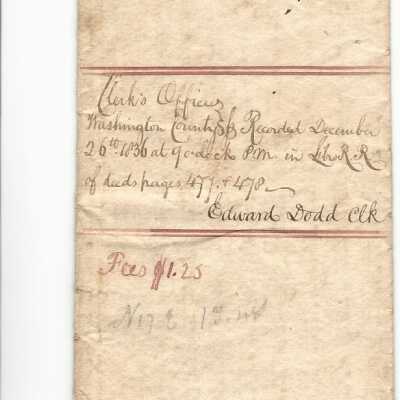 Clerk's Office
Washington County ss Recorded December
26th 1836 at 9 o'clock P.M. in Libr R R
of deeds pages 477 & 478
Edward Dodd Clk
Fees $1.25